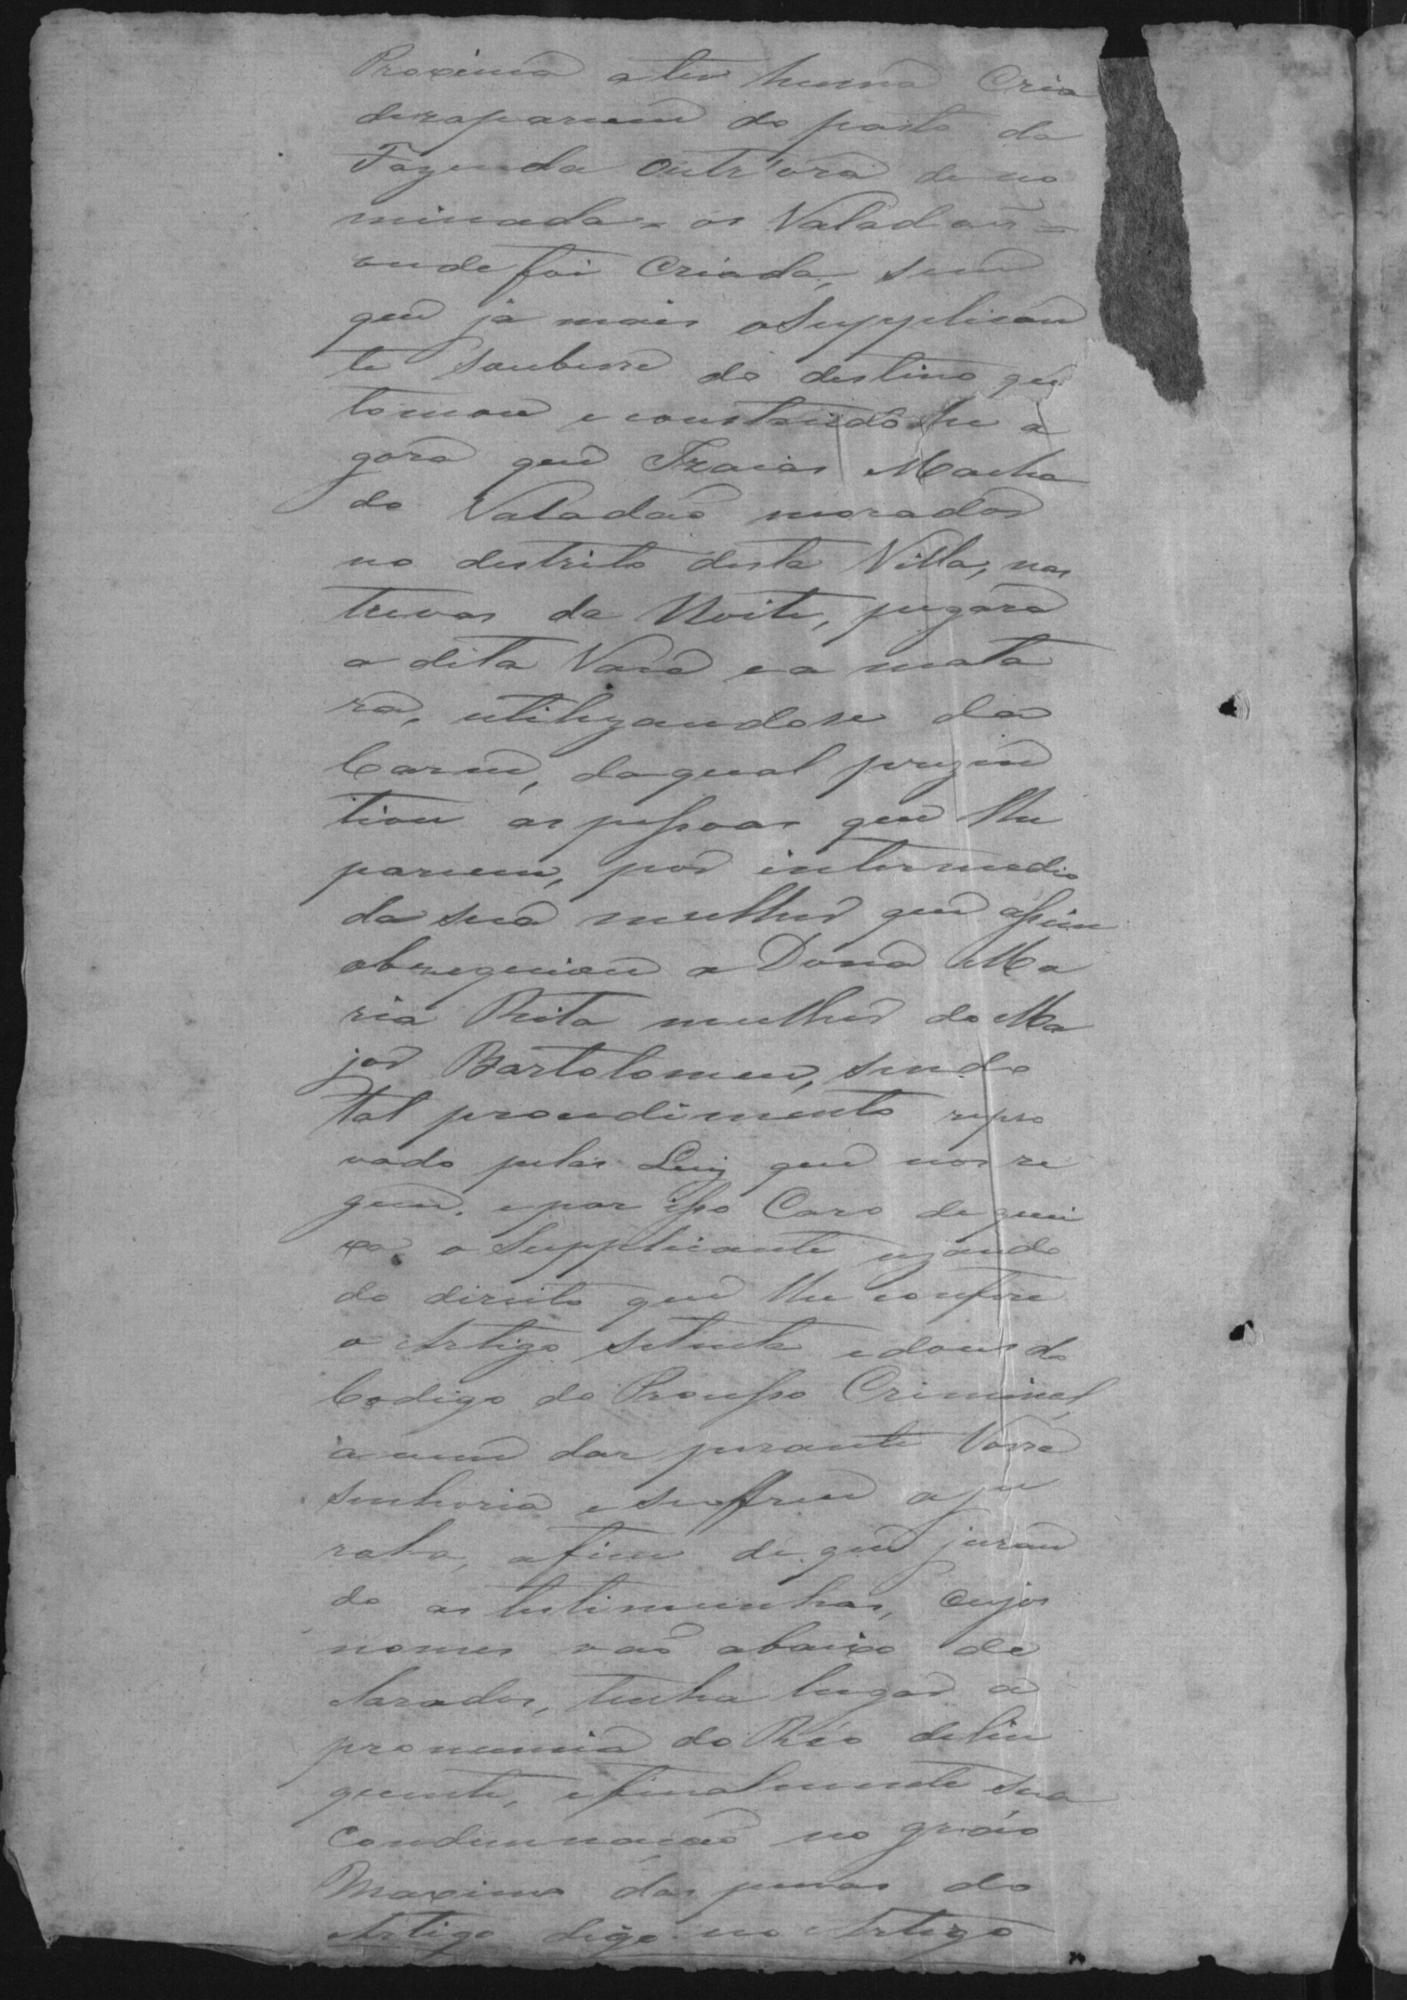 Proxima a ter huma cria
desapareceu do pasto da
Fazenda outr'ora deno
minada = os Valadões =
onde foi criada, sem
que já mais o Supplican
te soubesse do destino que
tomou e constando lhe a
gora que Izaias Macha
do Valadão morador
no destrito desta Villa, nas
trevas da Noite, pegara
a dita Vaca e a mata
ra, utilizandose da
Carne, da qual prezen
tiou as pessoas que lhe
pareceu, por intermedio
da sua mulher que assim
obzequiou a Dona Ma
ria Rita mulher do Ma
jor Bartolomeu, sendo
tal procedimento repro
vado pelas Leiz que nos re
gem. e por isso Caso de quei
xa o Supplicante uzando
do direito que lhe confere
o Artigo setenta e dous do
Codigo do Processo Criminal,
a vem dar perante Vossa
senhoria e suffreu a ju
rala, afim de que juran
do as testimunhas, cujos
nomes vaõ abaixo de
clarados, tenha lugar a
pronuncia do Réo delin
quente, e finalmente sua
Condemnaçaõ no gráo
Maximo das penas do
Artigo digo no Artigo